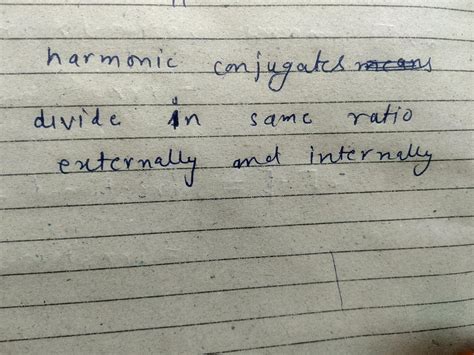 harmonic conjugates means
divide in same ratio
externally and internally